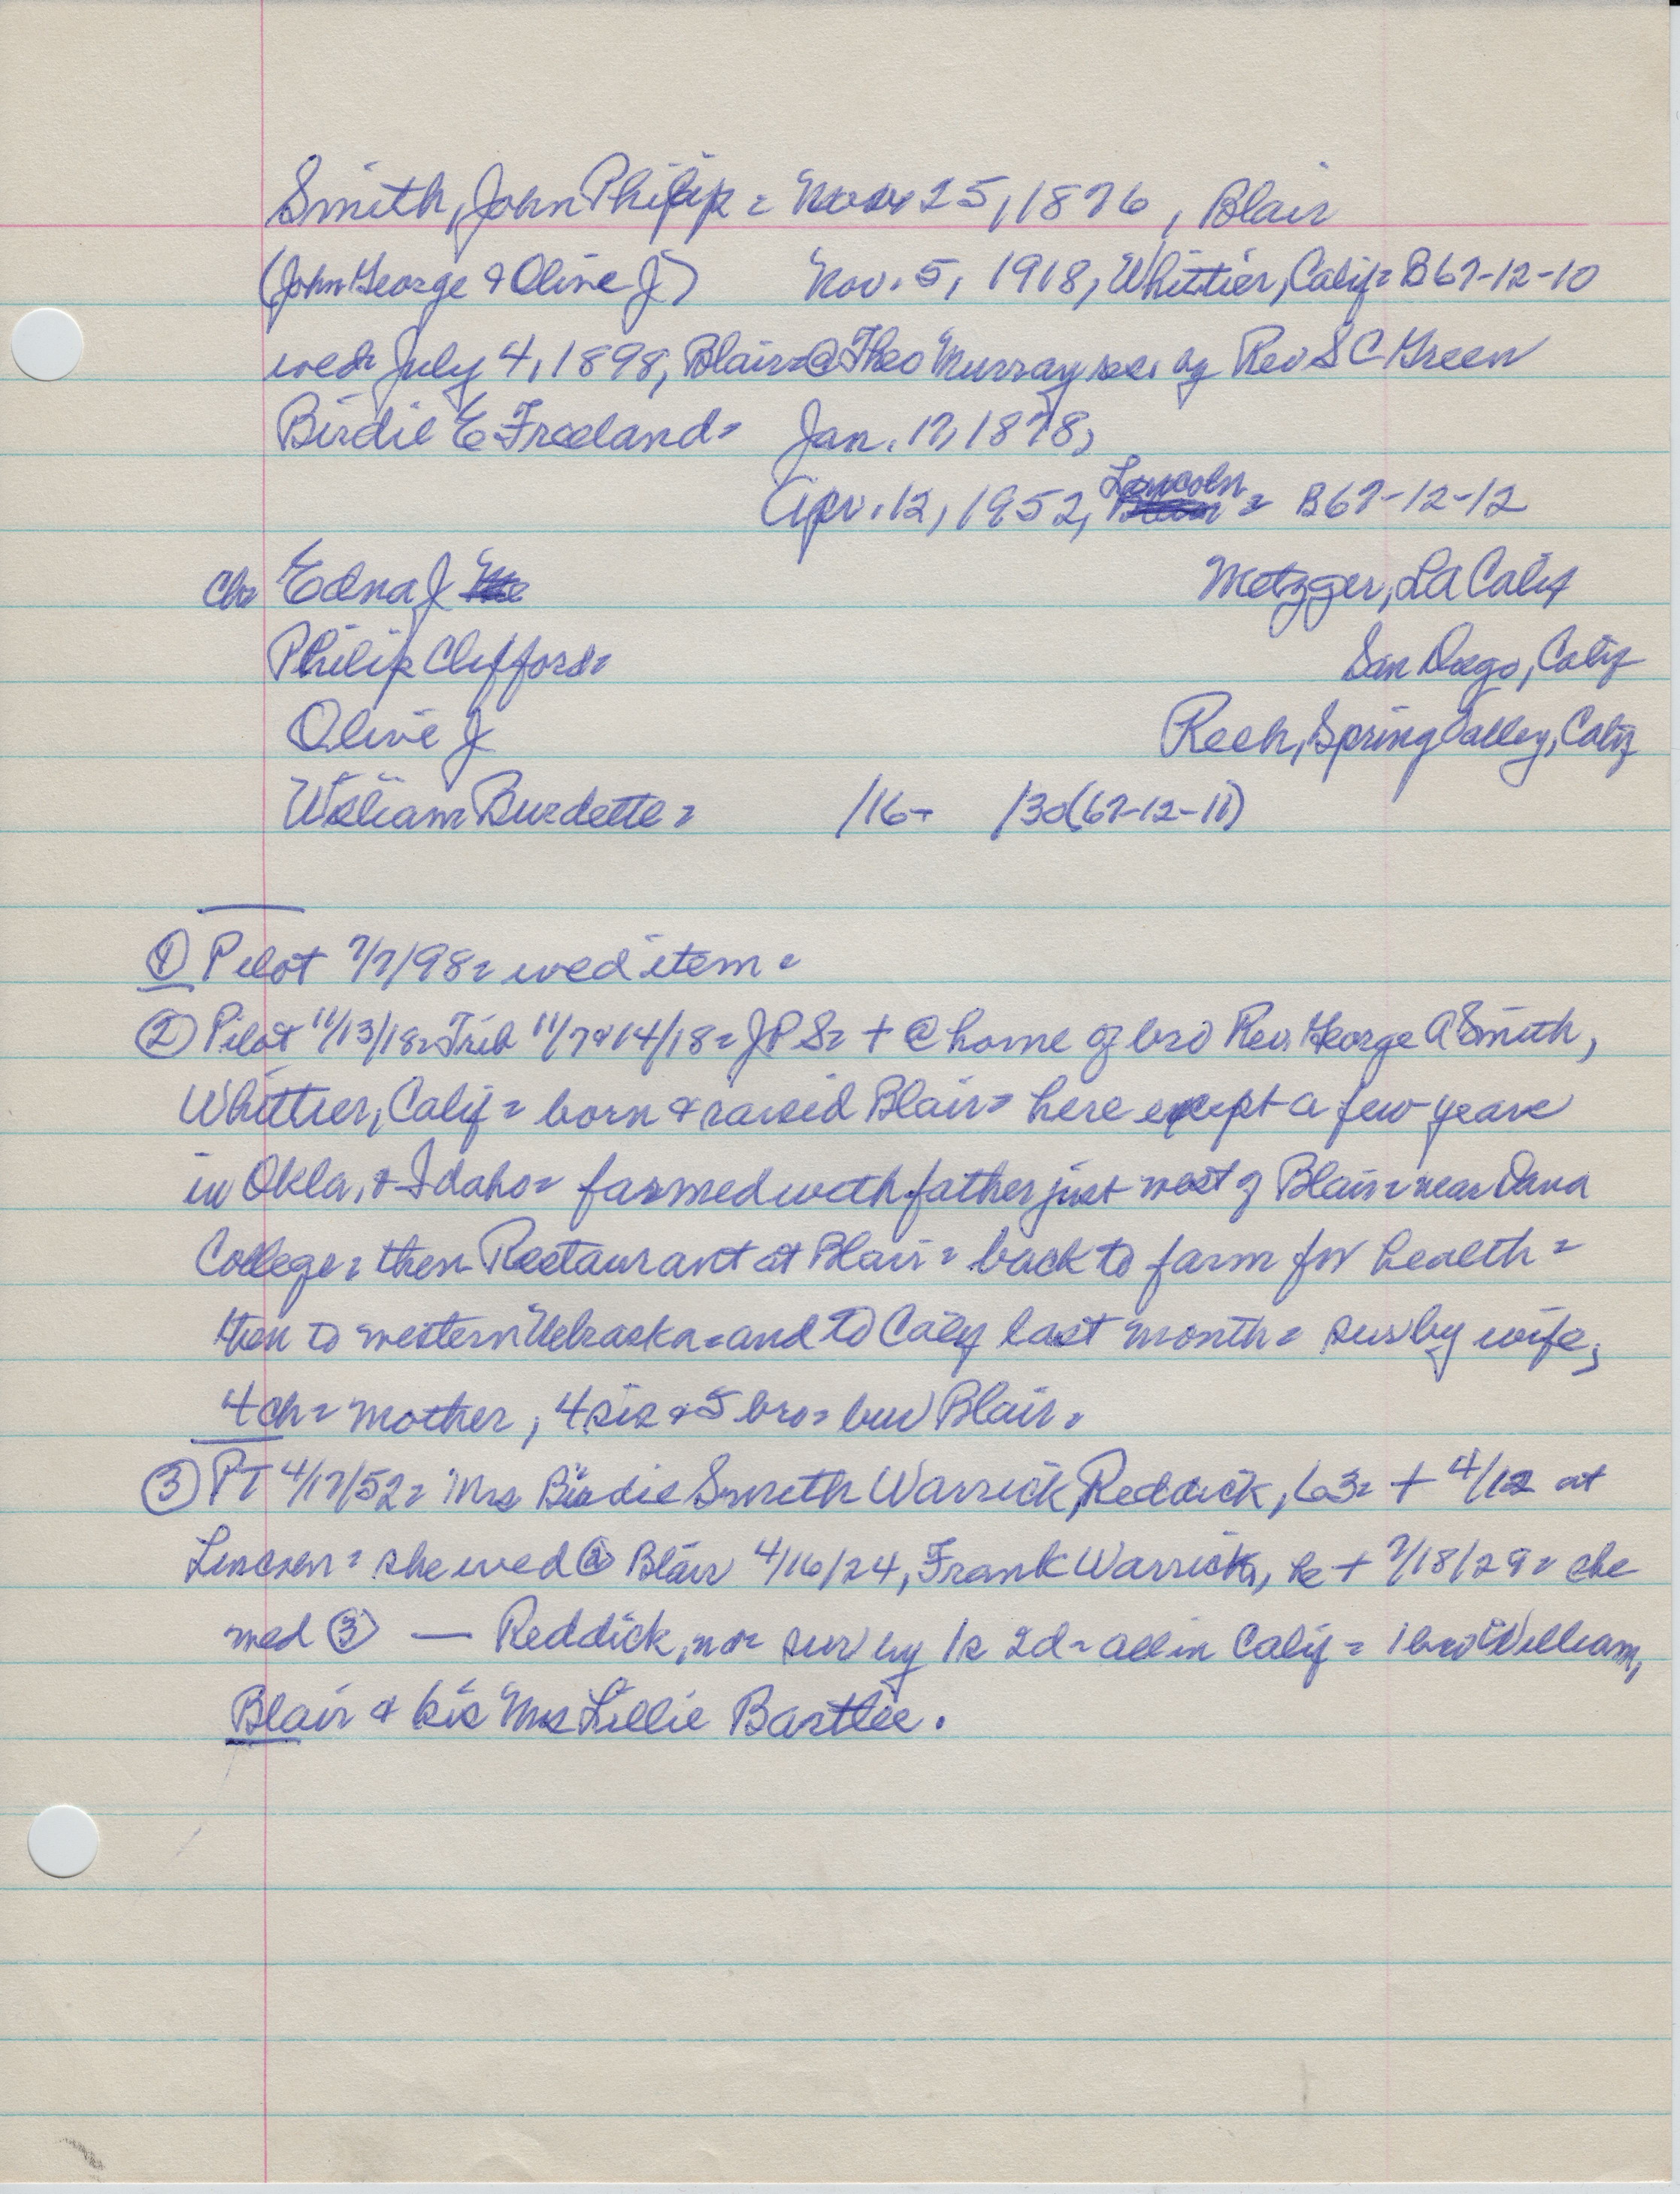 Smith, John Philip = Nov 25, 1876, Blair
(John George & Olive J) Nov. 5, 1918, Whittier, Calif = B67-12-10
wed = July 4, 1898, Blair = @ Theo Murray res. by Rev S C Green
Birdie E Freeland = Jan. 17, 1878,
Apr. 12, 1952, Lincoln = B67-12-12
Ch = Edna J Metzger, LA Calif
Philip Clifford = San Diego, Calif
Olive J Reeh, Spring Valley, Calif
William Burdette = /16- /30(67-12-11)
① Pilot 7/7/98 = wed item =
② Pilot 11/13/18 = Trib 11/7&14/18 = J P S = + @ home of bro Rev George A Smith,
Whittier, Calif = born & raised Blair = here except a few years
in Okla, & Idaho = farmed with father just west of Blair = near Dana
College = then Restaurant at Blair = back to farm for health =
then to western Nebraska = and to Calif last month = sur by wife,
4 ch = mother, 4 sis & 5 bro = bur Blair =
③ PT 4/17/52 = Mrs Birdie Smith Warrick, Reddick, 63 = + 4/12 at
Lincoln = she wed ② Blair 4/16/24, Frank Warrick, he + 7/18/29 = she
wed ③ — Reddick, no = sur by 1s 2d - all in Calif = 1 bro William,
Blair & sis Mrs Lillie Bartlee.